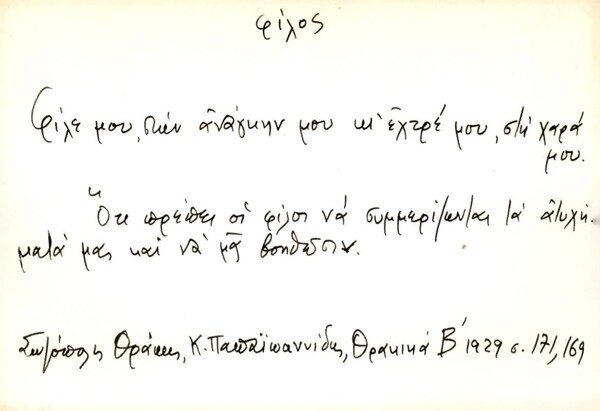 φίλος
Φίλε μου, στὴν ἀνάγκην μου κι' ἐχτρέ μου, στὴ χαρά
μου.
"Ὅτι πρέπει οἱ φίλοι νά συμμερίζωνται τά ἀτυχή-
ματά μας καὶ νὰ μᾶς βοηθοῦσιν.
Σωζόπολις Θράκης, Κ. Παπαϊωαννίδης, Θρακικά Β' 1929 σ. 171, 169